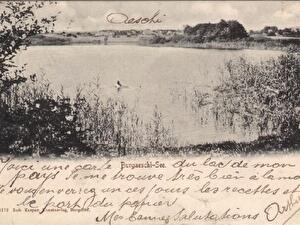 Oeschi
Burgaeschi-See.
Voici une carte du lac de mon
pays Je me trouve très bien à la mon
Je vous enverrez un ces jours les recettes et
le port du papier
Mes bonnes Salutations